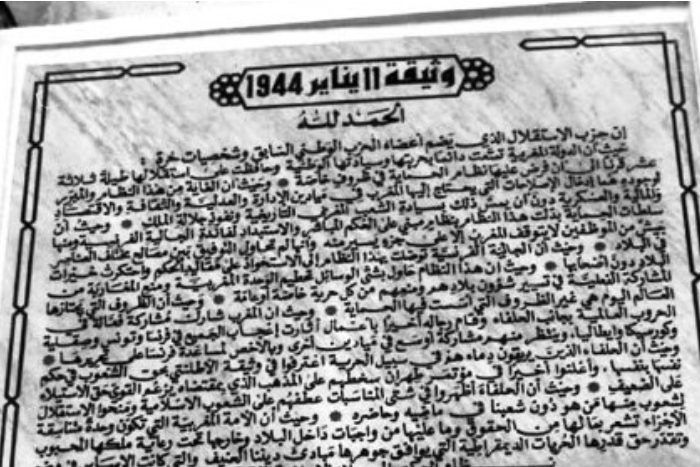 وثيقة 11 يناير 1944
الحمد لله
إن حزب الاستقلال الذي يضم أعضاء الحزب الوطني السابق وشخصيات حرة :
حيث أن الدولة المغربية تمتعت دائما بحريتها وسيادتها الوطنية وحافظت على استقلالها طيلة ثلاثة
عشر قرنا الى أن فرض عليها نظام الحماية في ظروف خاصة * وحيث أن الغاية من هذا النظام والمبرر
لوجوده هما إدخال الإصلاحات التي يحتاج إليها المغرب في ميادين الإدارة والعدلية والثقافة والاقتصاد
والمالية والعسكرية دون أن يمس ذلك بسيادة الشعب المغربي التاريخية ونفوذ جلالة الملك * وحيث أن
سلطات الحماية بدلت هذا النظام بنظام مبني على الحكم المباشر والاستبداد لفائدة الجالية الفرنسية ومنها
جيش من الموظفين لا يتوقف المغرب إلا على جزء يسير منه وأنها لم تحاول التوفيق بين مصالح مختلف العناصر
في البلاد * وحيث أن الجالية الفرنسية توصلت بهذا النظام الى الاستحواذ على مقاليد الحكم واحتكرت خيرات
البلاد دون أصحابها * وحيث أن هذا النظام حاول بشتى الوسائل تحطيم الوحدة المغربية ومنع المغاربة من
المشاركة الفعلية في تسيير شؤون بلادهم ومنعهم من كل حرية خاصة أو عامة * وحيث أن الظروف التي يجتازها
العالم اليوم هي غير الظروف التي أسست فيها الحماية * وحيث أن المغرب شارك مشاركة فعالة في
الحروب العالمية بجانب الحلفاء وقام رجاله أخيرا بأعمال أثارت إعجاب الجميع في فرنسا وتونس وصقلية
وكورسيكا وإيطاليا، وينتظر منهم مشاركة أوسع في ميادين أخرى وبالأخص لمساعدة فرنسا على تحريرها *
وحيث أن الحلفاء الذين يريقون دماءهم في سبيل الحرية اعترفوا في وثيقة الأطلنتي بحق الشعوب في حكم
نفسها بنفسها، وأعلنوا أخيرا في مؤتمر طهران سخطهم على المذهب الذي بمقتضاه يزعم القوي حق الاستيلاء
على الضعيف * وحيث أن الحلفاء أظهروا في شتى المناسبات عطفهم على الشعوب الاسلامية ومنحوا الاستقلال
لشعوب منها من هو دون شعبنا في ماضيه وحاضره * وحيث أن الأمة المغربية التي تكون وحدة متناسقة
الأجزاء تشعر بما لها من الحقوق وما عليها من واجبات داخل البلاد وخارجها تحت رعاية ملكها المحبوب
وتقدر حق قدرها الحريات الديمقراطية التي يوافق جوهرها مبادئ ديننا الحنيف والتي كانت الأساس في وضع